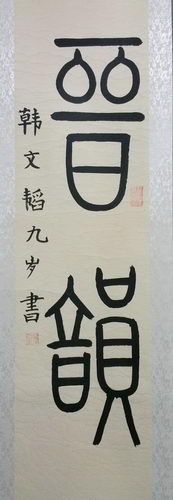 晉韻
韩文韬九岁書